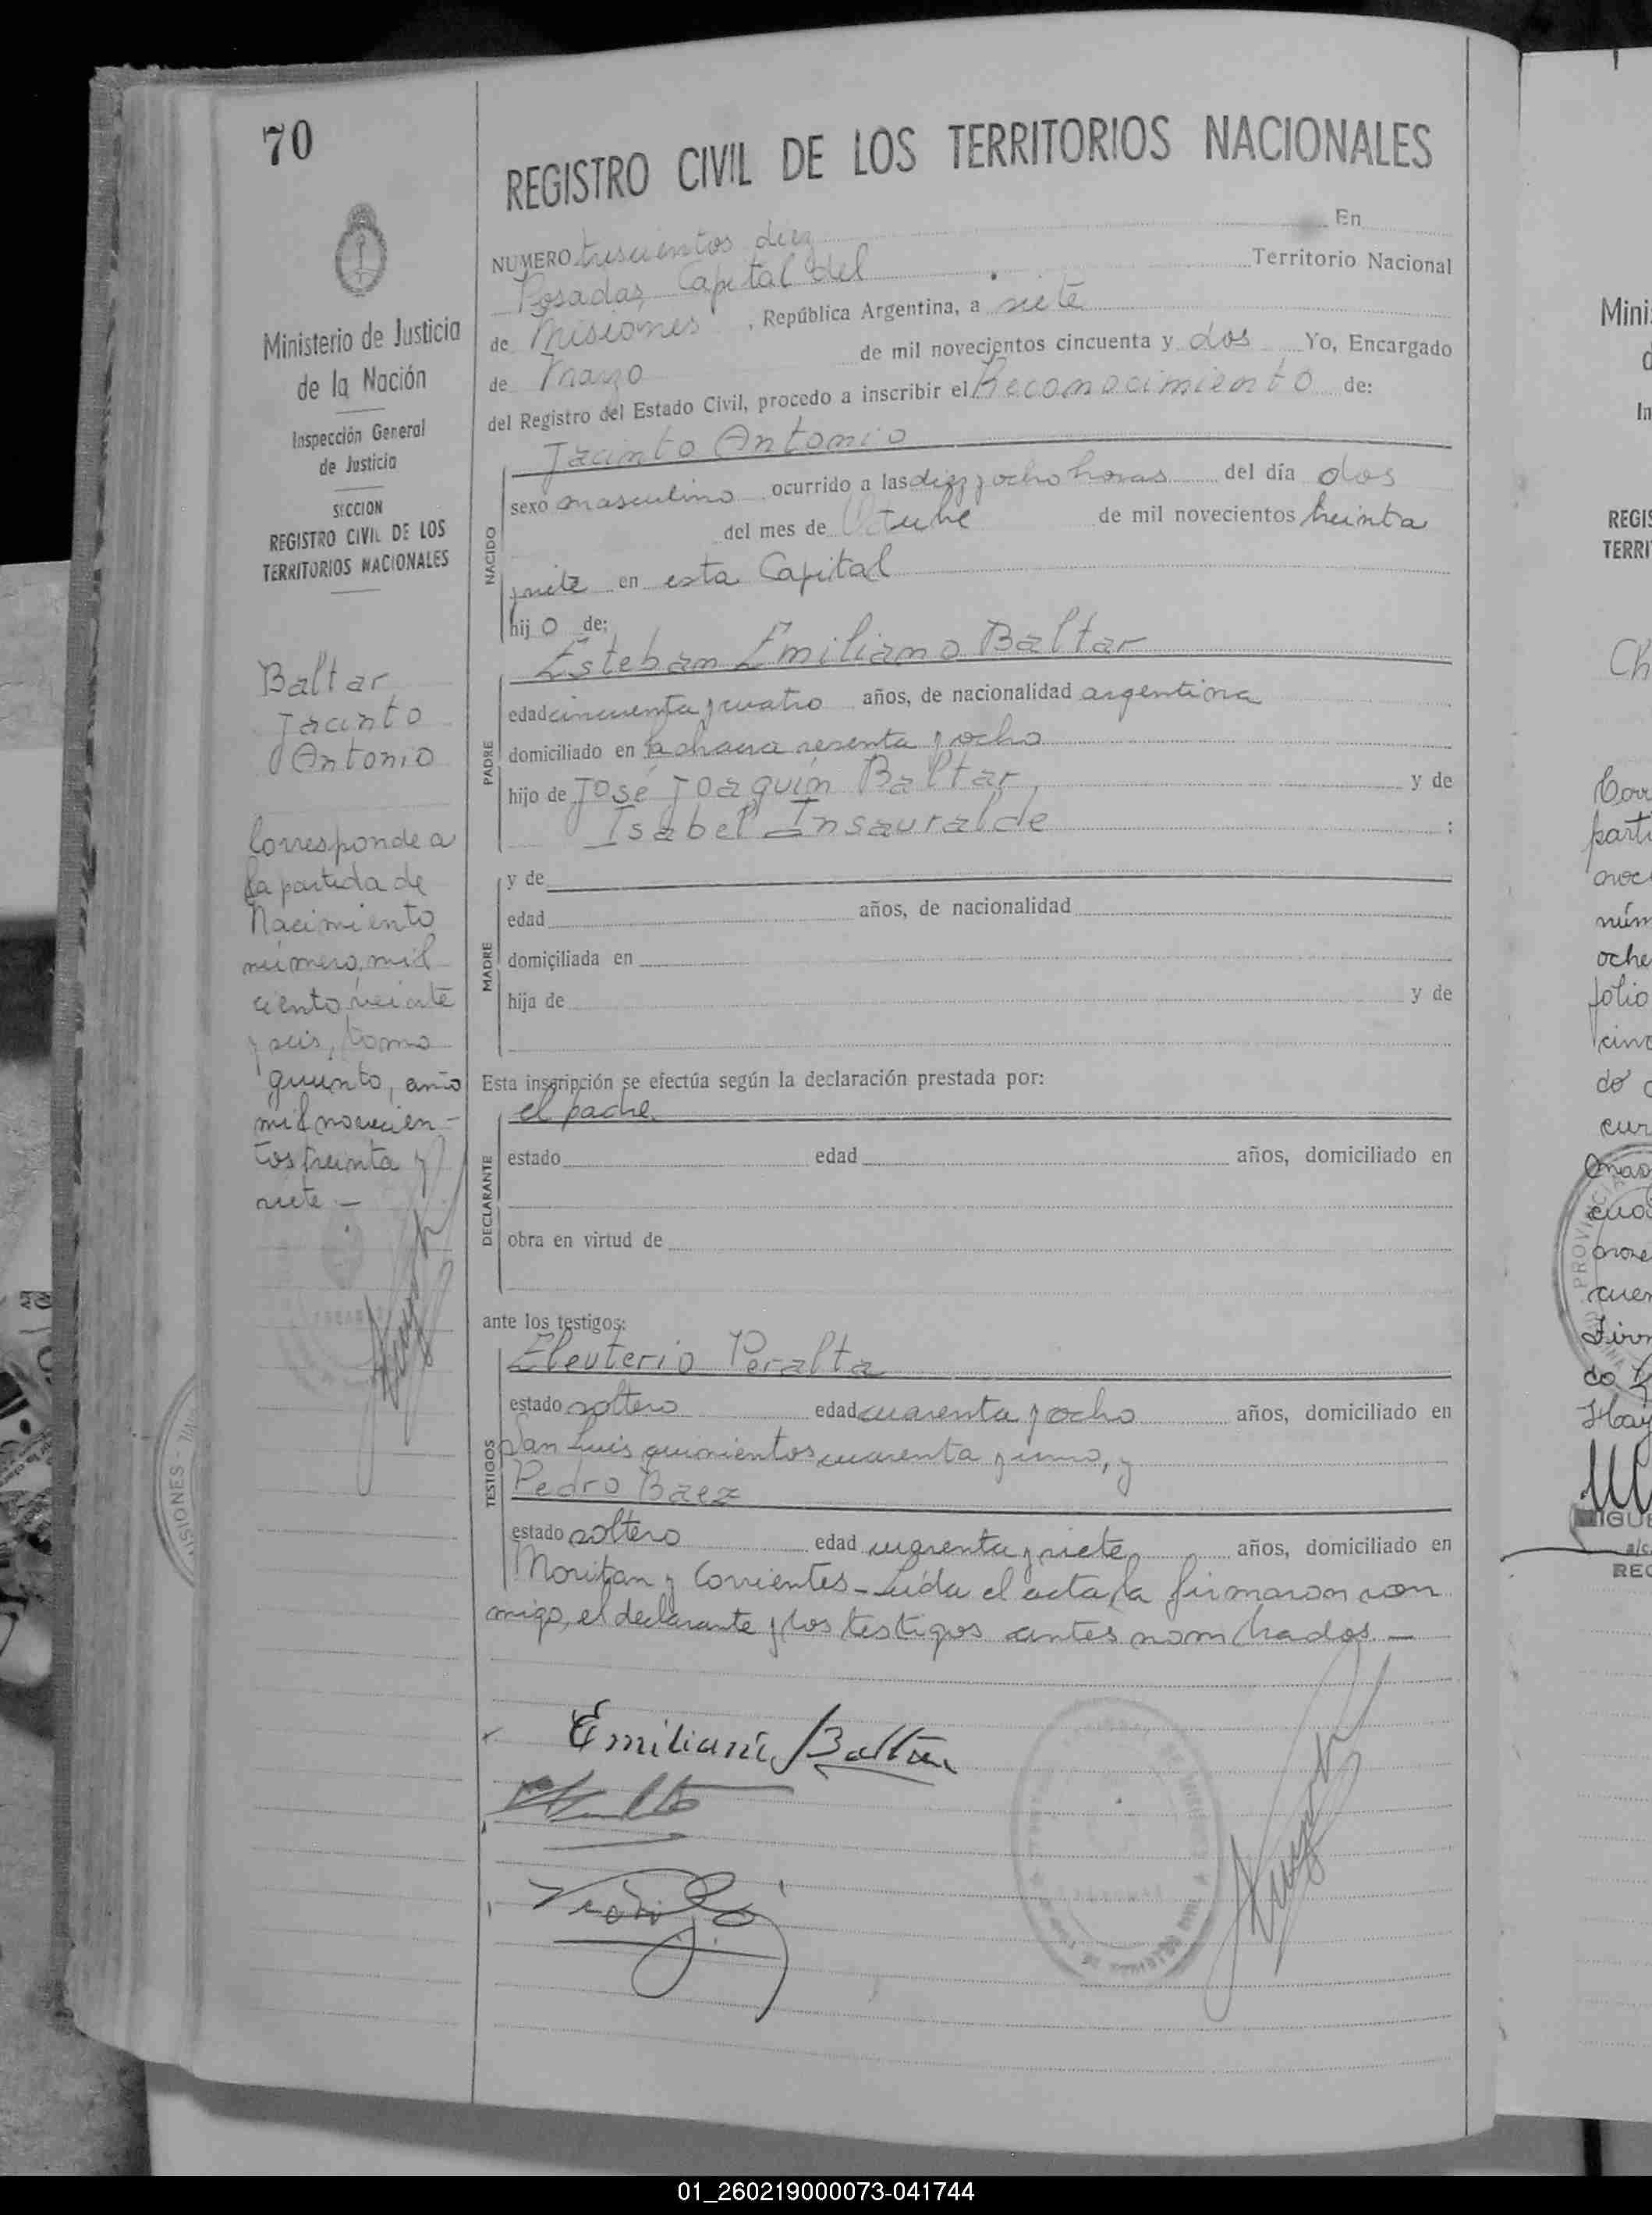 70
REGISTRO CIVIL DE LOS TERRITORIOS NACIONALES
NUMERO trescientos diez En
Posadas, Capital del Territorio Nacional
de Misiones, República Argentina, a siete
de Marzo de mil novecientos cincuenta y dos Yo, Encargado
del Registro del Estado Civil, procedo a inscribir el Reconocimiento de:
Jacinto Antonio
NACIDO
sexo masculino ocurrido a las diez y ocho horas del día dos
del mes de Octubre de mil novecientos treinta
y siete en esta Capital
hijo de:
Esteban Emiliano Baltar
PADRE
edad cincuenta y cuatro años, de nacionalidad argentina
domiciliado en la chacra sesenta y ocho
hijo de José Joaquín Baltar y de
Isabel Insauralde :
MADRE
y de
edad años, de nacionalidad
domiciliada en
hija de y de
Esta inscripción se efectúa según la declaración prestada por:
el padre
DECLARANTE
estado edad años, domiciliado en
obra en virtud de
ante los testigos:
Eleuterio Peralta
TESTIGOS
estado soltero edad cuarenta y ocho años, domiciliado en
San Luis quinientos cuarenta y uno, y
Pedro Baez
estado soltero edad cuarenta y siete años, domiciliado en
y Corrientes - Leída el acta, la firmaron con
migo, el declarante y los testigos antes nombrados. —
Emiliano Baltar
Ministerio de Justicia
de la Nación
Inspección General
de Justicia
SECCION
REGISTRO CIVIL DE LOS
TERRITORIOS NACIONALES
Baltar
Jacinto
Antonio
Corresponde a
la partida de
Nacimiento
número, mil
ciento veinte
y seis, tomo
quinto, año
mil novecien-
tos treinta y
siete. —
MISIONES -
Mini
REGIS
TERRI
Ch
parti
núm
oche
folio
do
PROVINCIA
cuen
do
REG
01_260219000073-041744